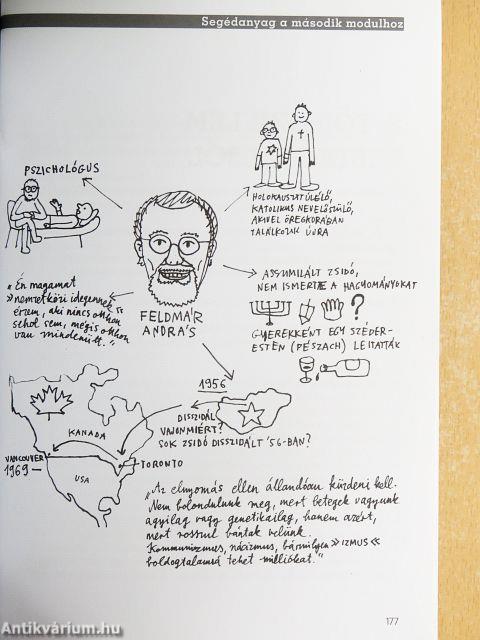 Segédanyag a második modulhoz
PSZICHOLÓGUS
HOLOKAUSZTTÚLÉLŐ,
KATOLIKUS NEVELŐSZÜLŐ,
AKIVEL ÖREGKORÁBAN
TALÁLKOZIK ÚJRA
„Én magamat
»nemzetközi idegennek«
érzem, aki nincs otthon
sehol sem, mégis otthon
van mindenütt."
FELDMÁR
ANDRÁS
ASSZIMILÁLT ZSIDÓ,
NEM ISMERTE A HAGYOMÁNYOKAT
?
GYEREKKÉNT EGY SZÉDER-
ESTÉN (PÉSZACH) LEITATTÁK
1956
DISSZIDÁL
VAJON MIÉRT?
SOK ZSIDÓ DISSZIDÁLT '56-BAN?
KANADA
VANCOUVER
1969
TORONTO
USA
„Az elnyomás ellen állandóan küzdeni kell.
Nem bolondulunk meg, mert betegek vagyunk
agyilag vagy genetikailag, hanem azért,
mert rosszul bántak velünk.
Kommunizmus, nácizmus, bármilyen »IZMUS«
boldogtalanná tehet milliókat."
177
Antikvárium.hu